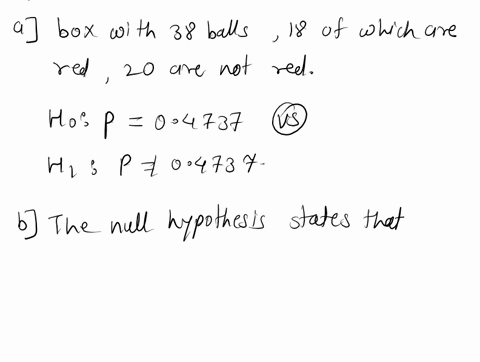 a] box with 38 balls, 18 of which are
red, 20 are not red.
H₀: P = 0.4737 (VS)
H₁: P ≠ 0.4737.
b] The null hypothesis states that